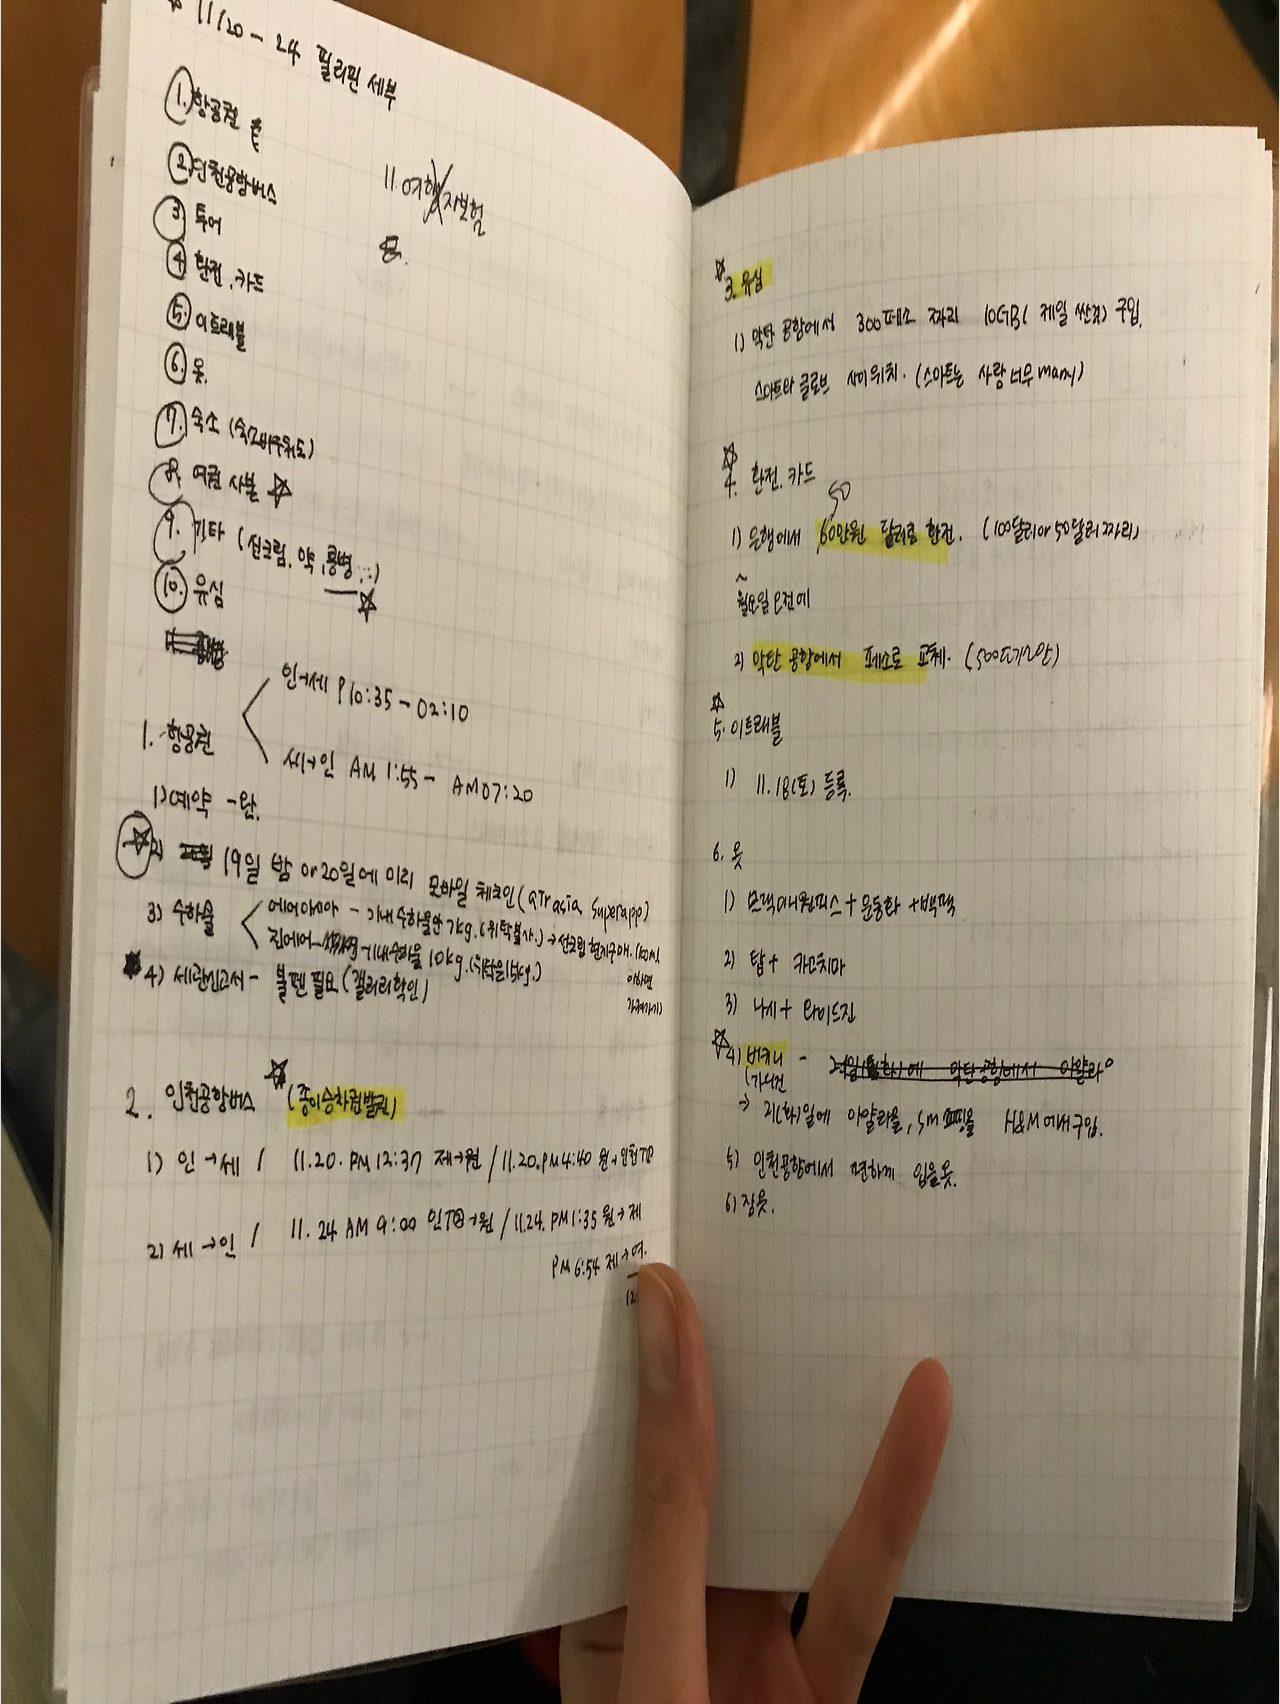 11/20 - 24 필리핀 세부
1. 항공권
2. 인천공항버스
3 투어
4 환전, 카드
5. 이트래블
6. 옷.
7. 숙소 (숙소바우처도)
8. 여권 사본 ☆
9. 기타 (선크림, 약, 공병 ...)
10. 유심
11. 여행자보험
1. 항공권
인→세 P10:35 - 02:10
세→인 AM 1:55 - AM07:20
1) 예약 - 완.
☆ 2) 19일 밤 or 20일에 미리 모바일 체크인 (airasia superapp)
3) 수하물
에어아시아 - 기내수하물만 7kg. (위탁불사.) → 선크림 현지구매. (100ml
이하면
가져가기)
진에어 - 기내수하물 10kg. (위탁은 15kg.)
4) 세관신고서 - 볼펜 필요 (갤러리확인)
2. 인천공항버스 ☆ (종이승차권발권)
1) 인→세 / 11.20. PM 12:37 제→원 / 11.20. PM 4:40 원→인천
2) 세→인 / 11. 24 AM 9:00 인 →원 / 11.24. PM 1:35 원→제
PM 6:54 제→여.
☆
3. 유심
1) 막탄 공항에서 300페소 짜리 10GB( 제일 싼거) 구입.
스마트와 글로브 사이 위치. (스마트는 사람 너무 many)
☆
4. 환전. 카드
50
1) 은행에서 60만원 달러로 환전. (100달러 or 50달러 짜리)
월요일 오전에
2) 막탄 공항에서 페소로 교체.
☆
5. 이트래블
1) 11. 18(토) 등록.
6. 옷
1) 블랙미니원피스 + 운동화 + 백팩
2) 탑 + 카고치마
3) 나시 + 와이드진
☆ 4) 비키니 -
(가디건
→ 21(화)일에 아얄라몰, sm 쇼핑몰 H&M에서 구입.
5) 인천공항에서 편하게 입을옷.
6) 잠옷.